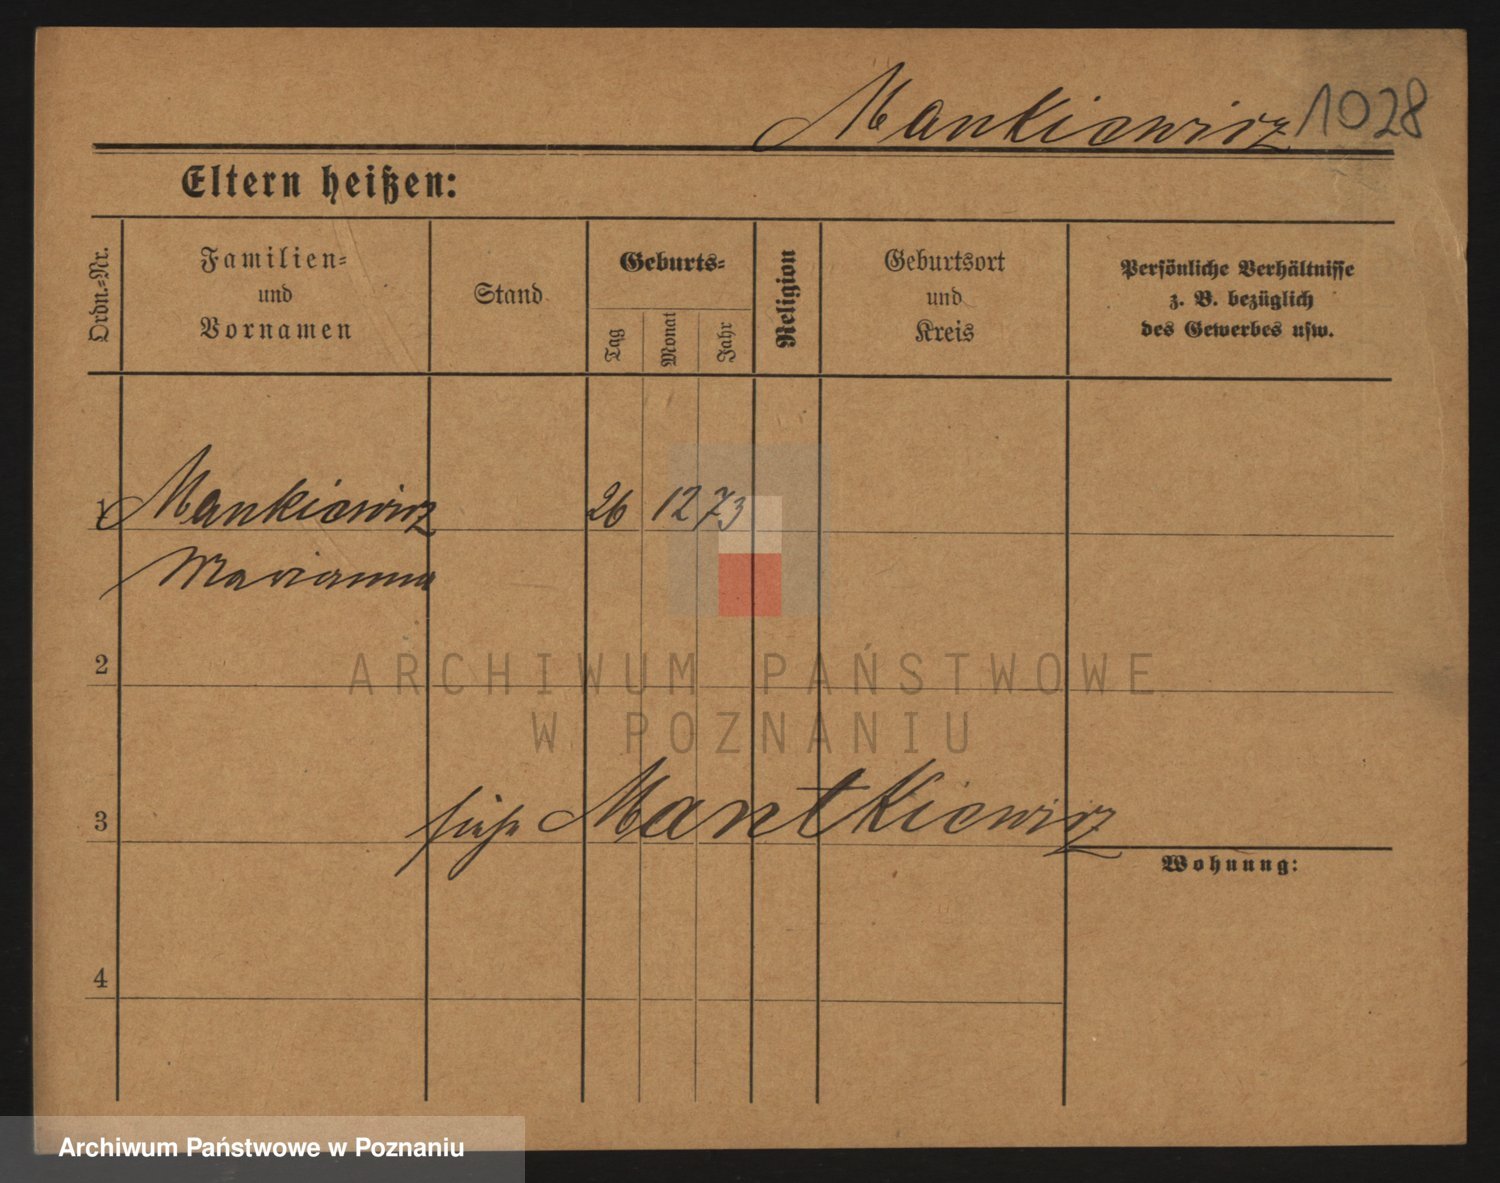 Mankiewicz 1028
Eltern heißen:
Ordn.=Nr.
Familien=
und
Vornamen
Stand
Geburts=
Tag
Monat
Jahr
Religion
Geburtsort
und
Kreis
Persönliche Verhältnisse
z. B. bezüglich
des Gewerbes usw.
1 Mankiewicz 26 12 73
Marianna
2
ARCHIWUM PAŃSTWOWE
W POZNANIU
3 siehe Mantkiewicz
Wohnung:
4
Archiwum Państwowe w Poznaniu